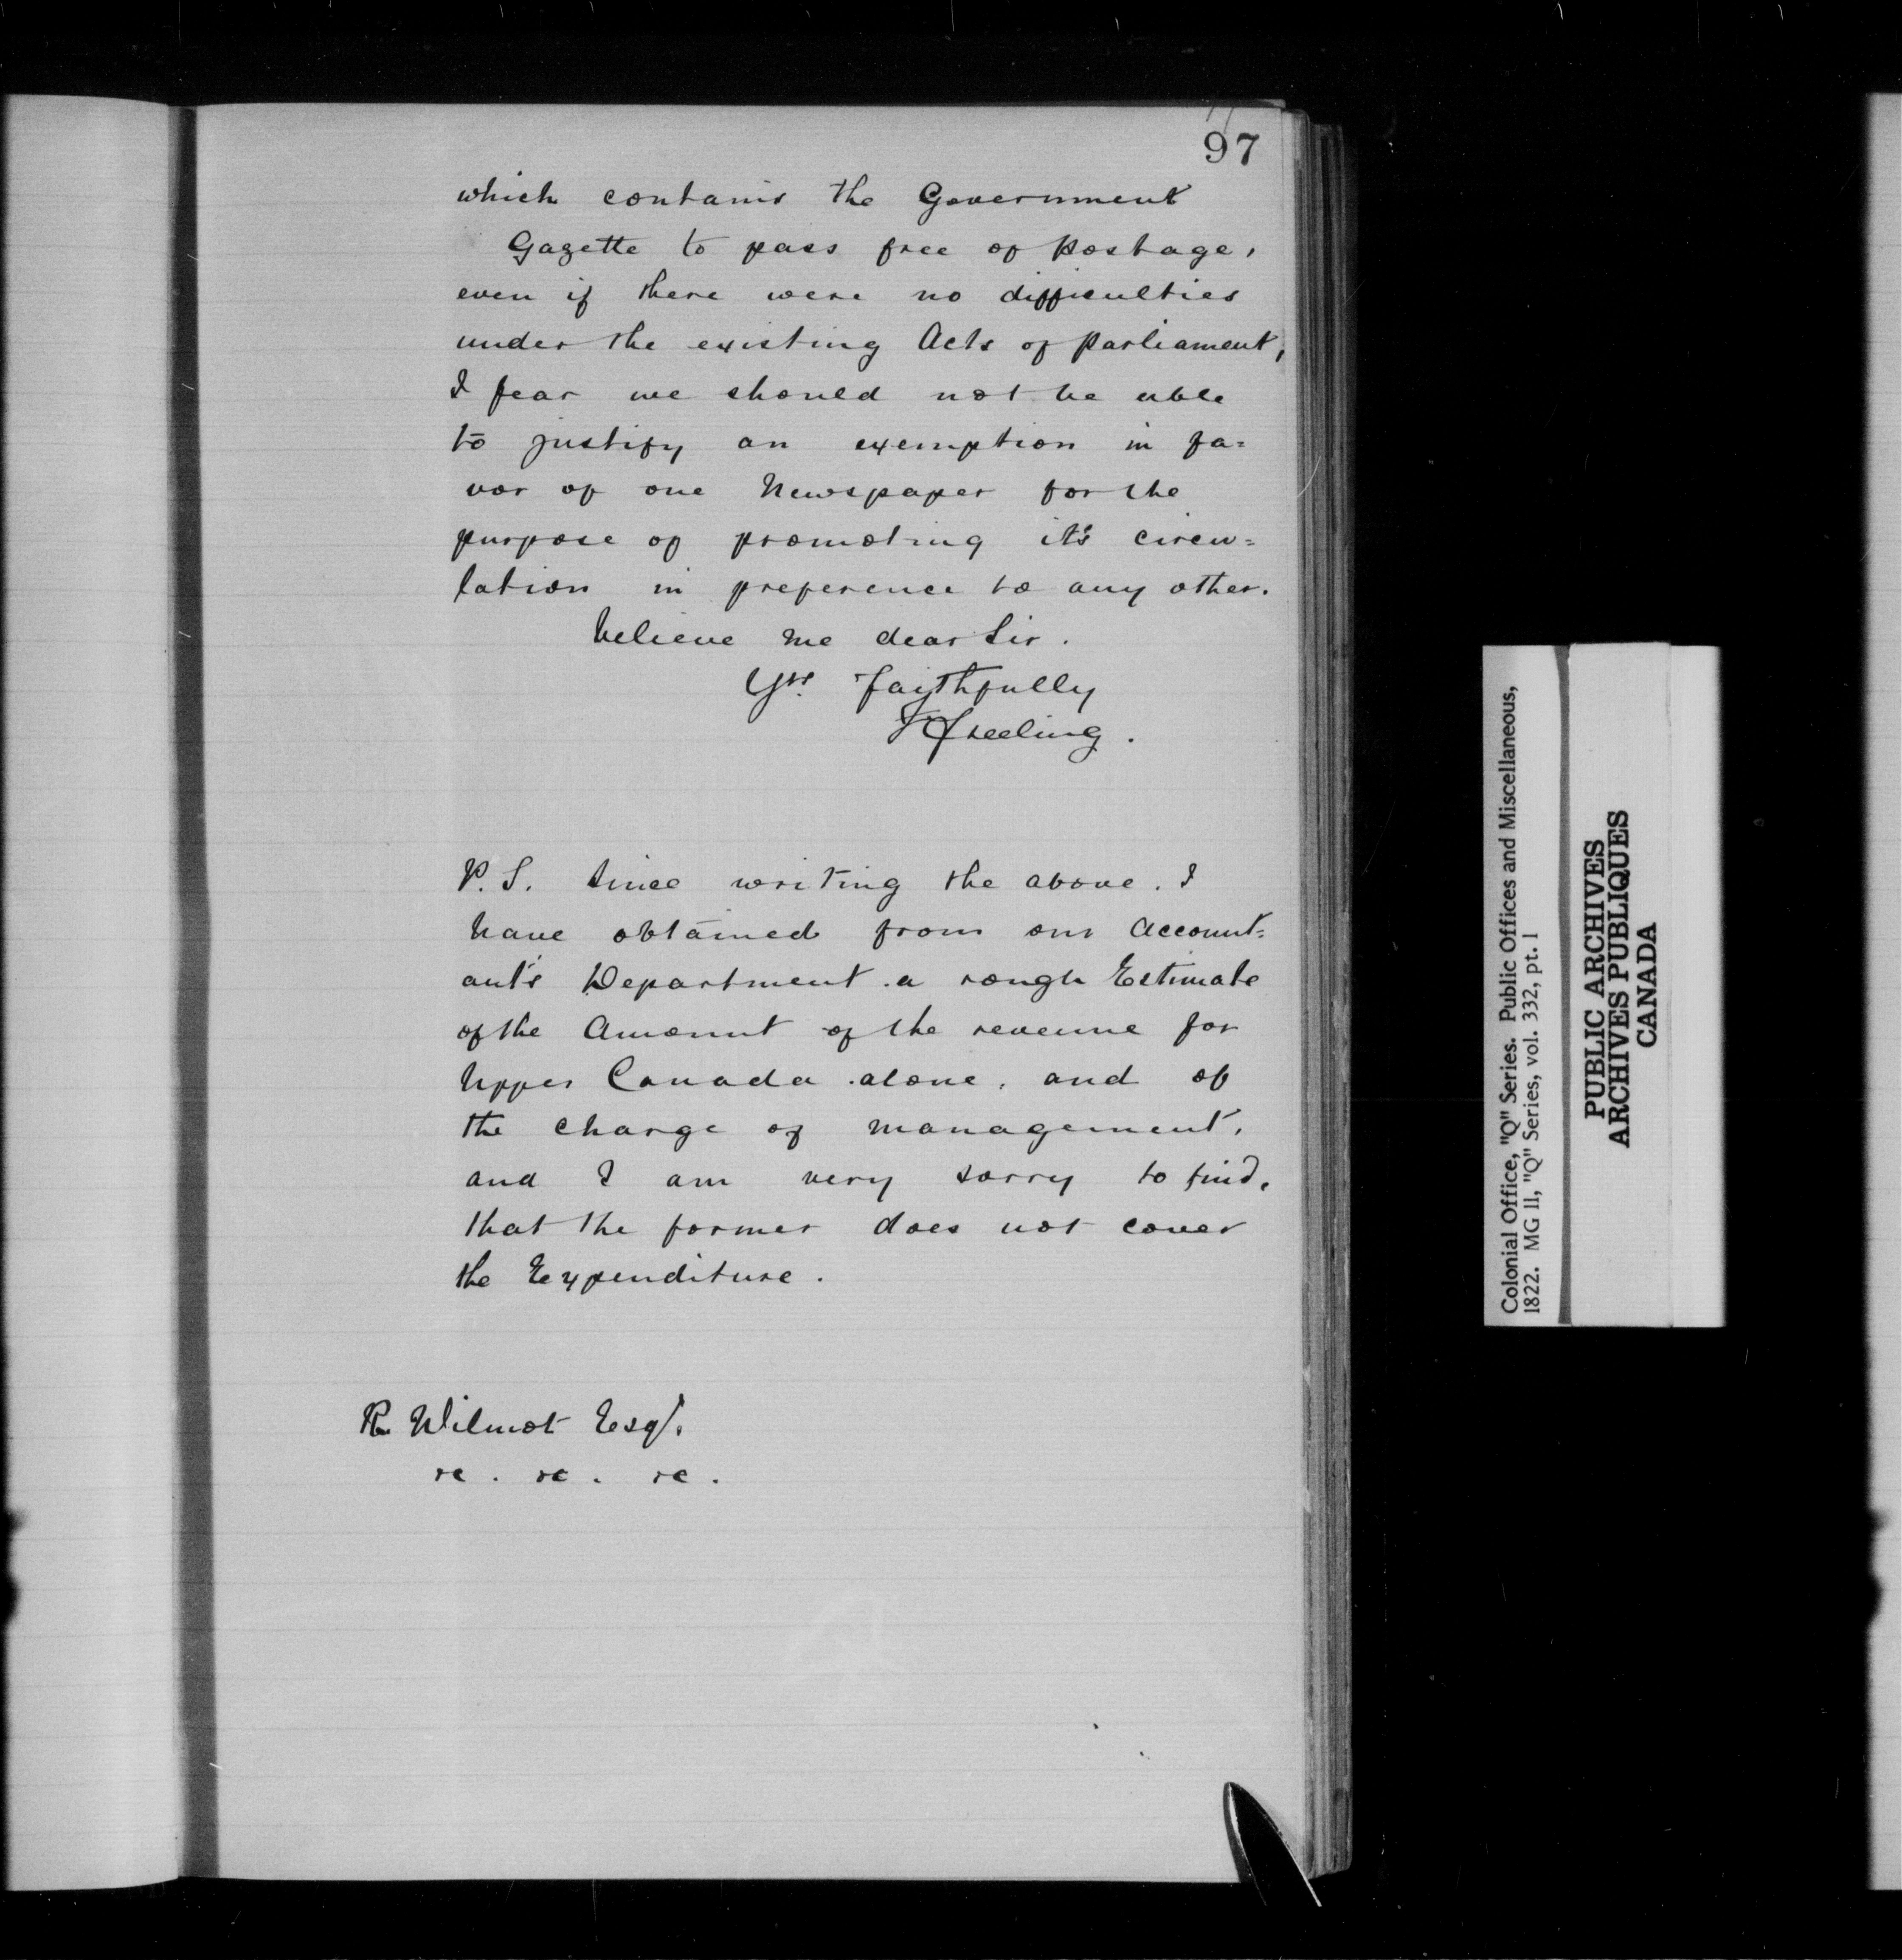 97
which contains the Government
Gazette to pass free of postage,
even if there were no difficulties
under the existing Acts of parliament,
I fear we should not be able
to justify an exemption in fa=
vor of one Newspaper for the
purpose of promoting it's circu=
lation in preference to any other.
believe me dear Sir.
Yrs. faithfully
F Freeling.
P.S. Since writing the above. I
have obtained from our Account=
ant's Department a rough Estimate
of the Amount of the revenue for
Upper Canada alone, and of
the charge of management,
and I am very sorry to find,
that the former does not cover
the Expenditure.
R. Wilmot Esqr.
&c. &c. &c.
Colonial Office, "Q" Series. Public Offices and Miscellaneous,
1822. MG 11, "Q" Series, vol. 332, pt. 1
PUBLIC ARCHIVES
ARCHIVES PUBLIQUES
CANADA